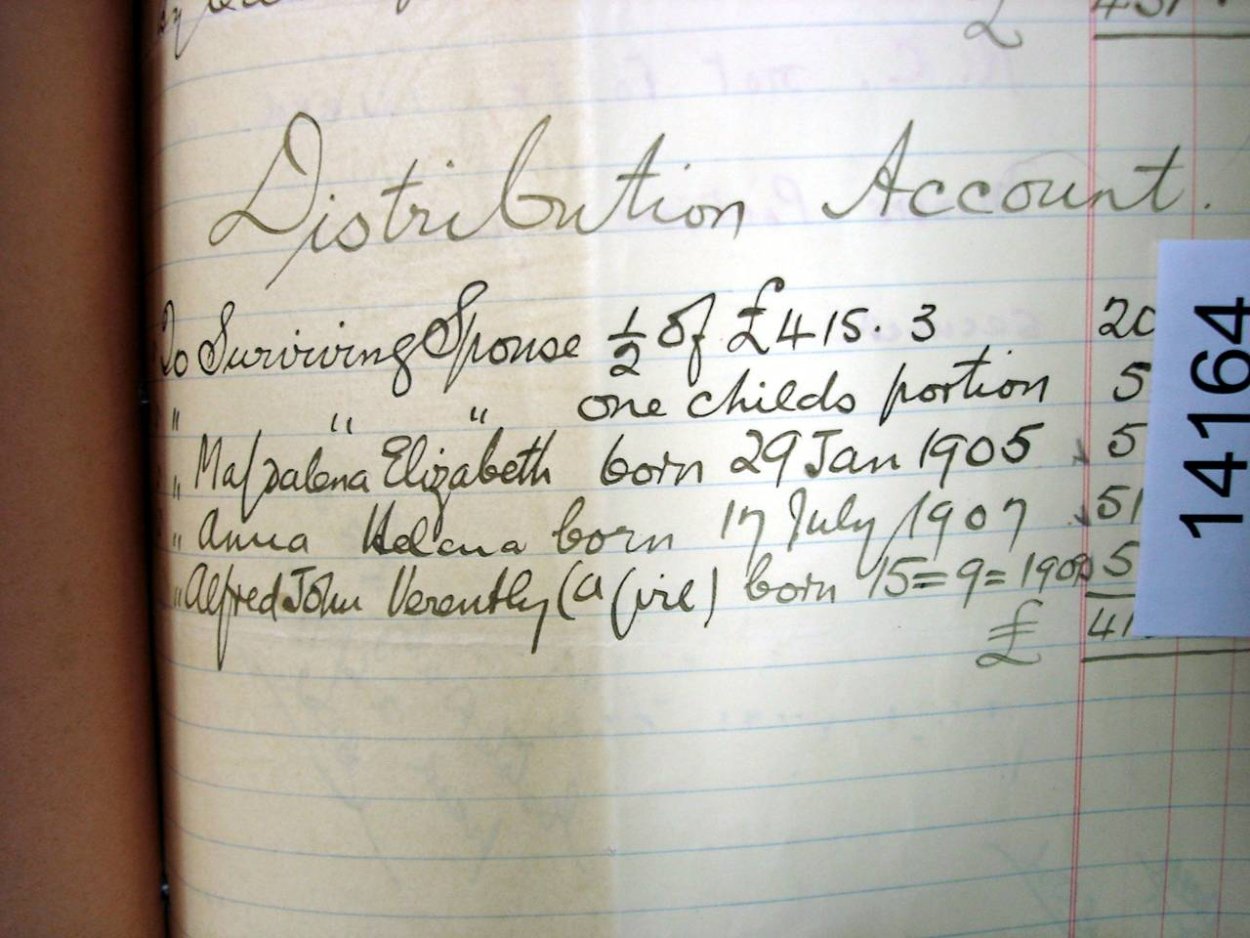 £ 431
Distribution Account.
To Surviving Spouse ½ of £415.3 20
" " " one childs portion 5
" Magdalena Elizabeth born 29 Jan 1905 5
" Anna Helena born 17 July 1907 51
" Alfred John (a girl) born 15=9=190 5
£ 41
14164